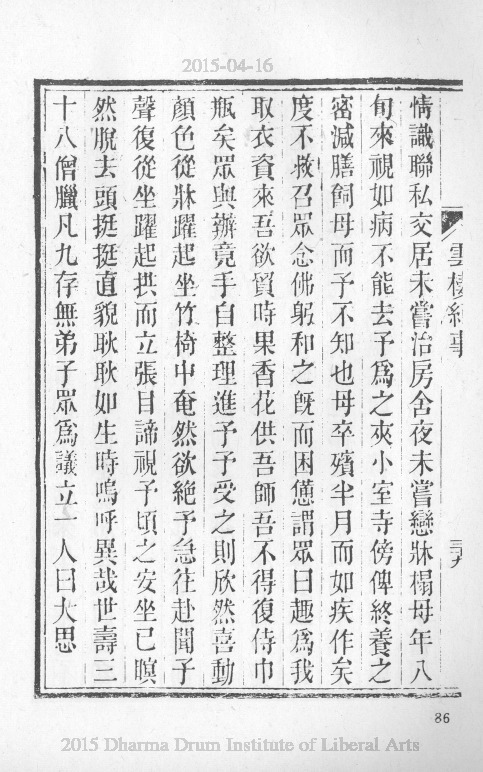 2015-04-16
雲棲紀事
三九
情識聯私交居未嘗治房舍夜未嘗戀牀榻母年八
旬來視如病不能去予為之夾小室寺傍俾終養之
密減膳飼母而予不知也母卒殯半月而如疾作矣
度不救召眾念佛躬和之既而困憊謂眾曰趣為我
取衣資來吾欲貿時果香花供吾師吾不得復侍巾
瓶矣眾與辦竟手自整理進予予受之則欣然喜動
顏色從牀躍起坐竹椅中奄然欲絕予急往赴聞予
聲復從坐躍起拱而立張目諦視予頃之安坐已暝
然脫去頭挺挺直貌耿耿如生時嗚呼異哉世壽三
十八僧臘凡九存無弟子眾為議立一人曰大思
86
2015 Dharma Drum Institute of Liberal Arts